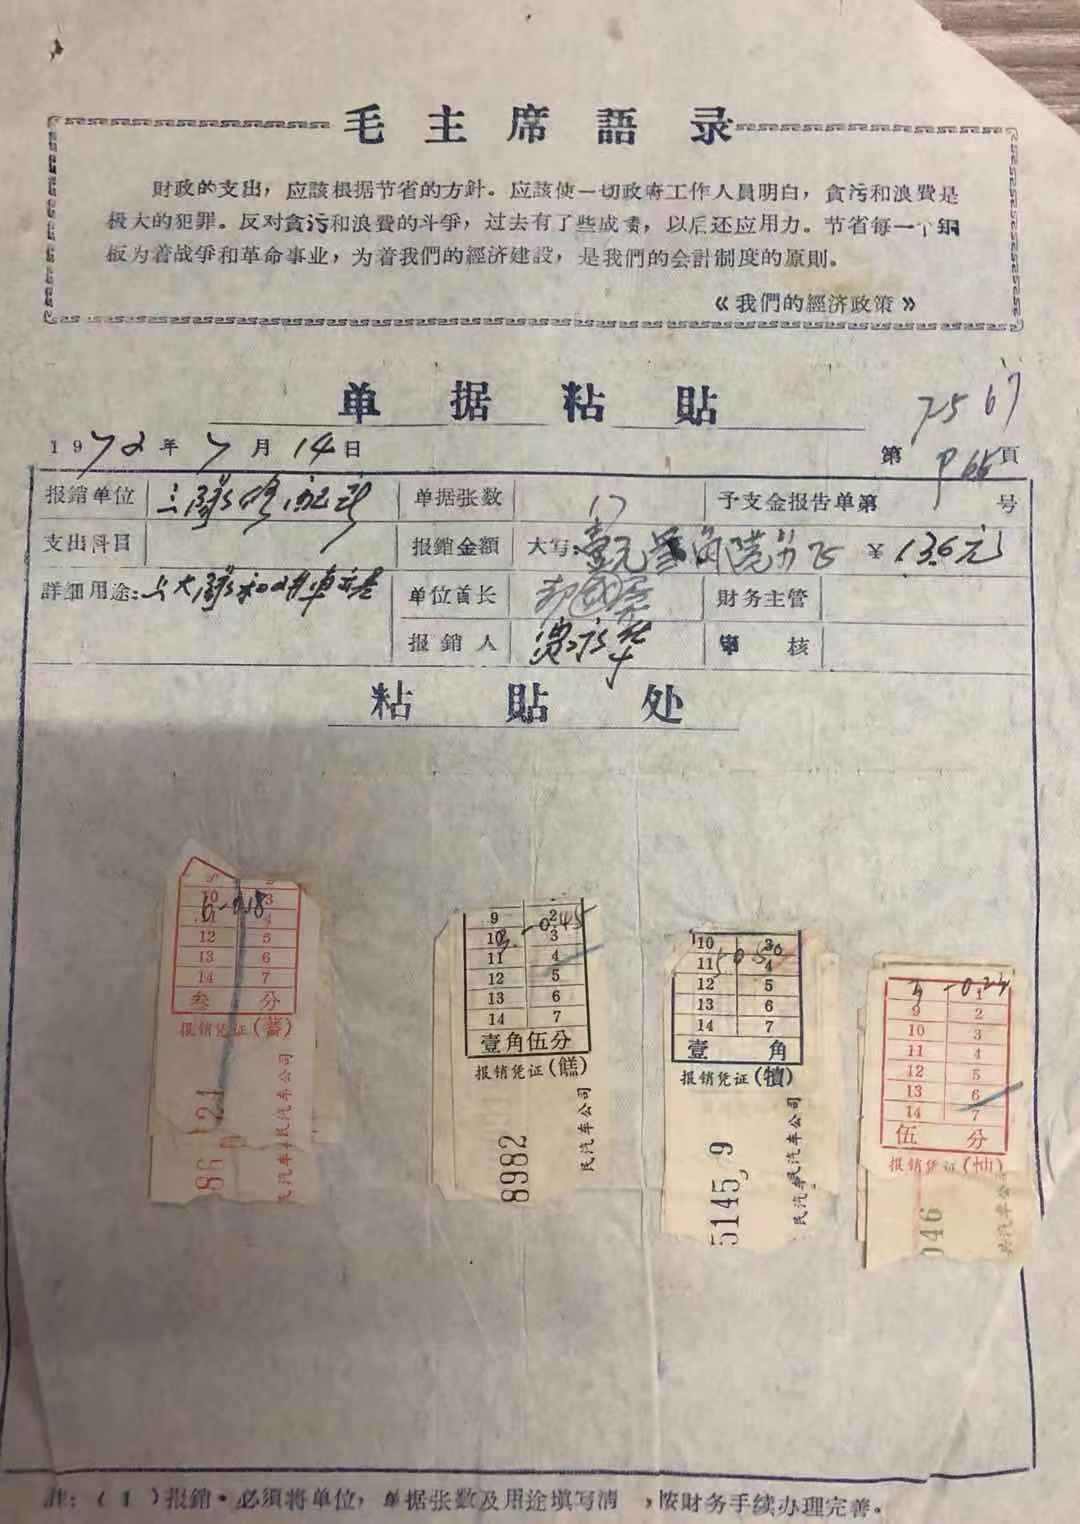 毛主席語录
財政的支出，应該根据节省的方針。应該使一切政府工作人員明白，貪污和浪費是
极大的犯罪。反对貪污和浪費的斗爭，过去有了些成績，以后还应用力。节省每一个銅
板为着战爭和革命事业，为着我們的經济建設，是我們的会計制度的原則。
《我們的經济政策》
单据粘貼
75 67
1972年7月14日 第 P 66 頁
报銷单位 单据张数 17 予支金报告单第 号
支出科目 报銷金額 大写：壹元 角 分 ¥ 1.36元
詳細用途： 单位首长 财务主管
报銷人 审核
粘貼处
10 3
6-0.18
4
12 5
13 6
14 7
叁分
报销凭证(蓄)
121
86
民汽车公司
9 2
10 3
3-0.45
11 4
12 5
13 6
14 7
壹角伍分
报销凭证(餻)
8982
民汽车公司
10 3
11 4
5 0.50
12 5
13 6
14 7
壹角
报销凭证(犢)
5145 9
民汽车公司
1
9 2
10 3
11 4
12 5
13 6
14 7
伍分
报销凭证(怞)
046
汽车公
註：（1）报銷·必須将单位，单据张数及用途填写清，按財务手续办理完善。